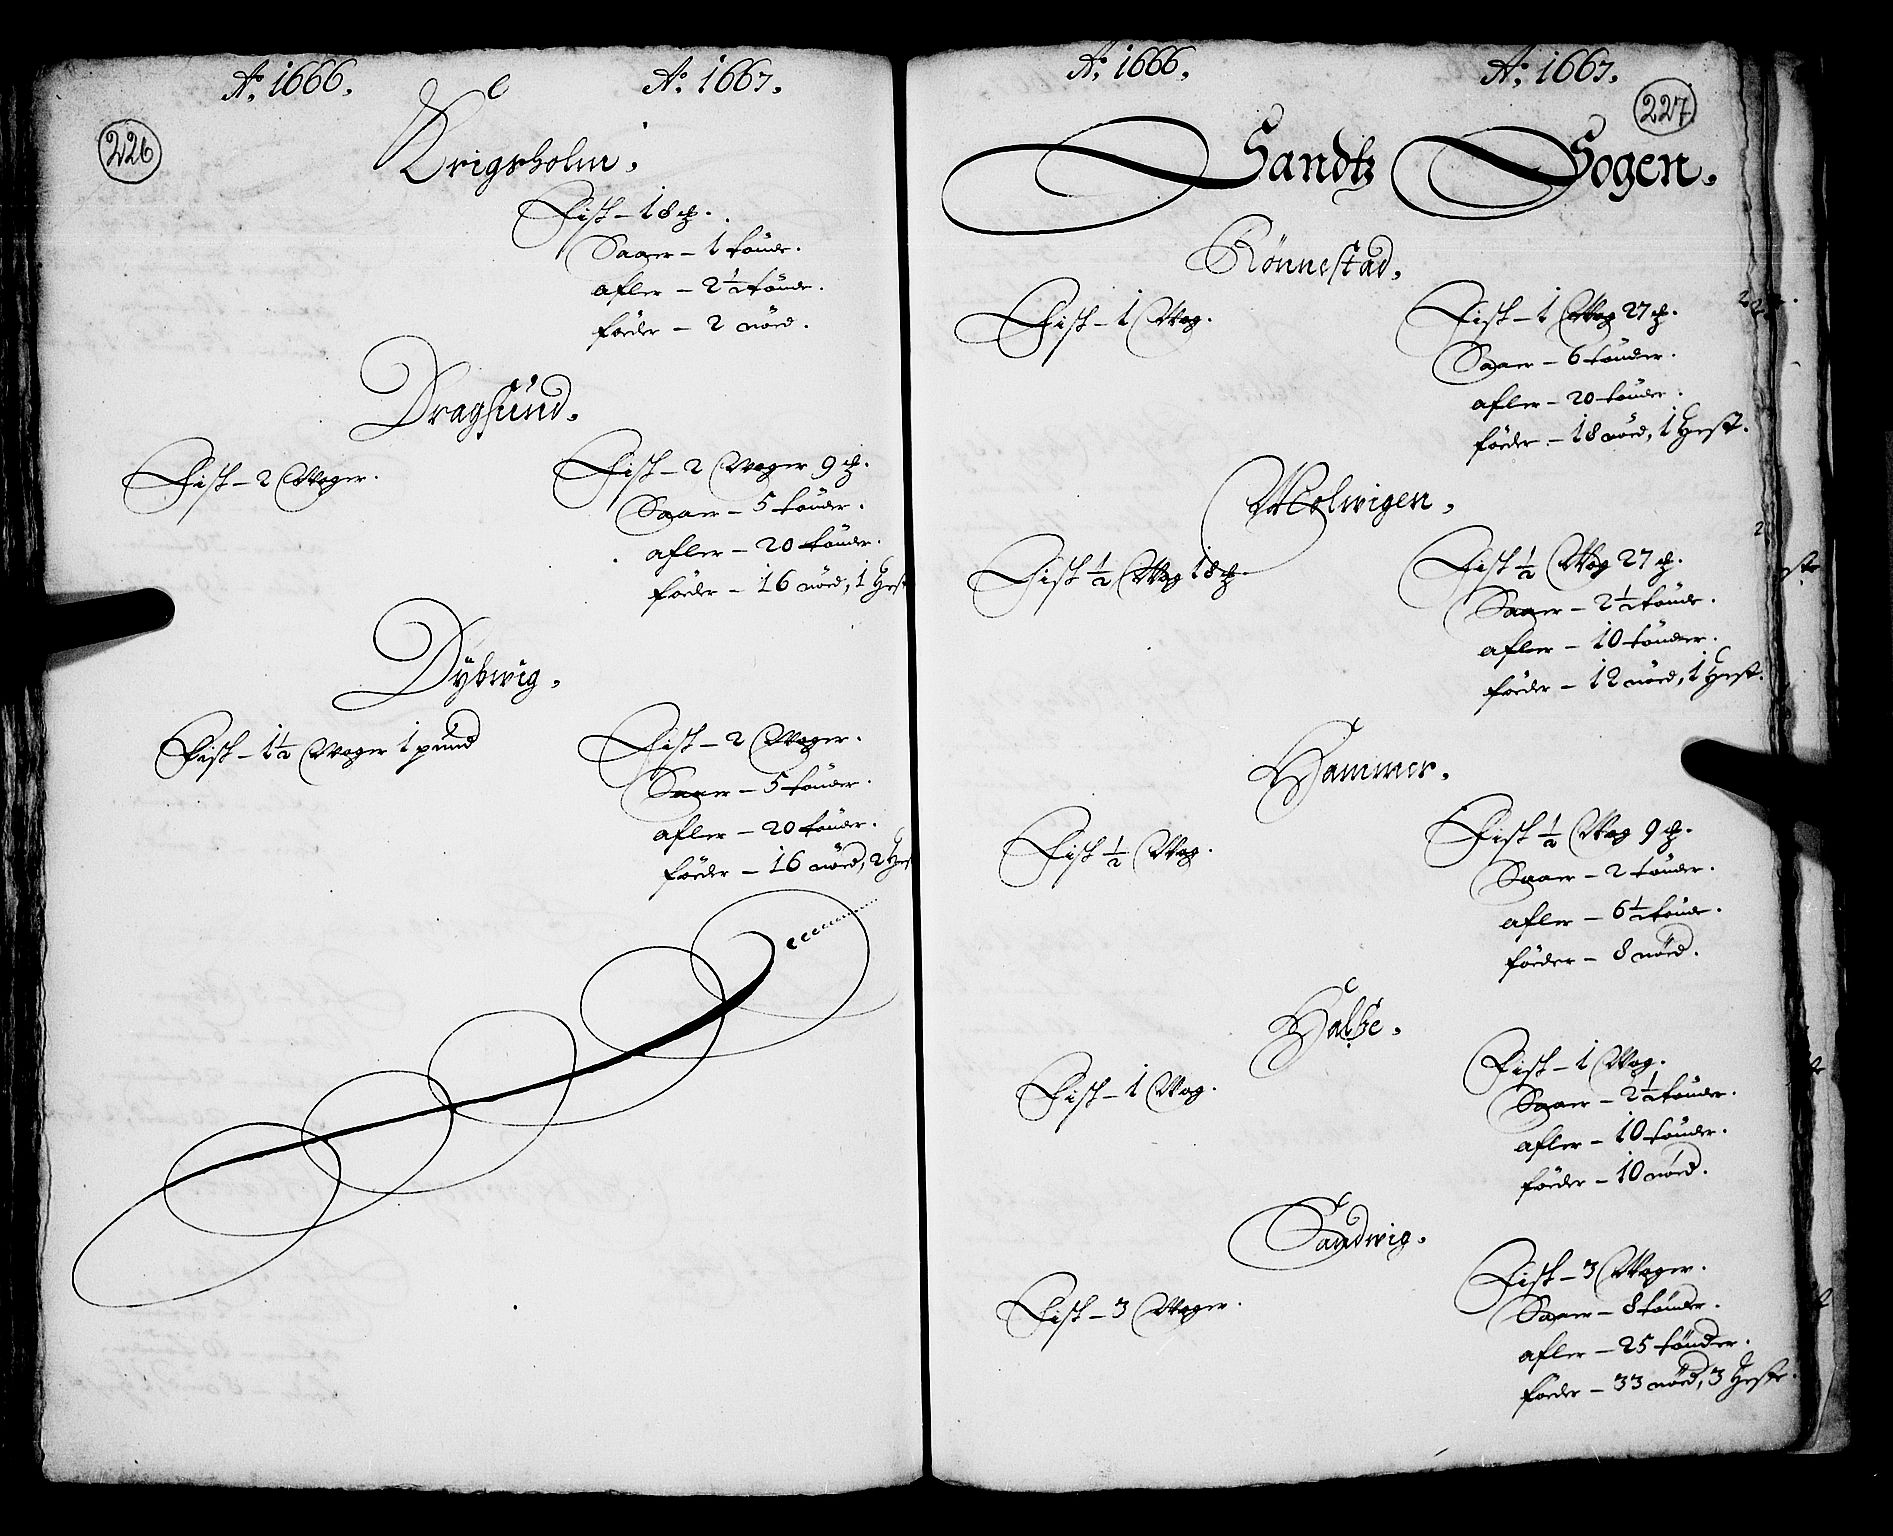 Ao. 1666. Ao. 1667.
226
Krigsholm.
Fisk – 18 ℔.
Saaer – 1 tönde.
afler – 2½ tönde.
föeder – 2 nöed.
Dragsund.
Fisk – 2 Woger. Fisk – 2 Woger 9 ℔.
Saaer – 5 tönder.
afler – 20 tönder.
föeder – 16 nöed, 1 Hest
Dybwig.
Fisk – 1½ Woger 1 pund Fisk – 2 Woger.
Saaer – 5 tönder.
afler – 20 tönder.
föeder – 16 nöed, 2 Hest
Ao. 1666. Ao. 1667.
227
Sandtz Sogen.
Rönnestad.
Fisk – 1 Wog. Fisk – 1 Wog 27 ℔.
Saaer – 6 tönder.
afler – 20 tönder.
föeder – 18 nöed, 1 Hest.
Molwigen.
Fisk ½ Wog 18 ℔. Fisk ½ Wog 27 ℔.
Saaer – 2½ tönde.
afler – 10 tönder.
föeder – 12 nöed, 1 Hest.
Hammer.
Fisk ½ Wog. Fisk ½ Wog 9 ℔.
Saaer – 2 tönder.
afler – 6½ tönde.
föeder – 8 nöed.
Fisk – 1 Wog. Fisk – 1 Wog.
Saaer – 2½ tönder.
afler – 10 tönder.
föeder – 10 nöed.
Sandwig.
Fisk – 3 Woger. Fisk – 3 Woger.
Saaer – 8 tönder.
afler – 25 tönder.
föeder – 33 nöed, 3 Heste.